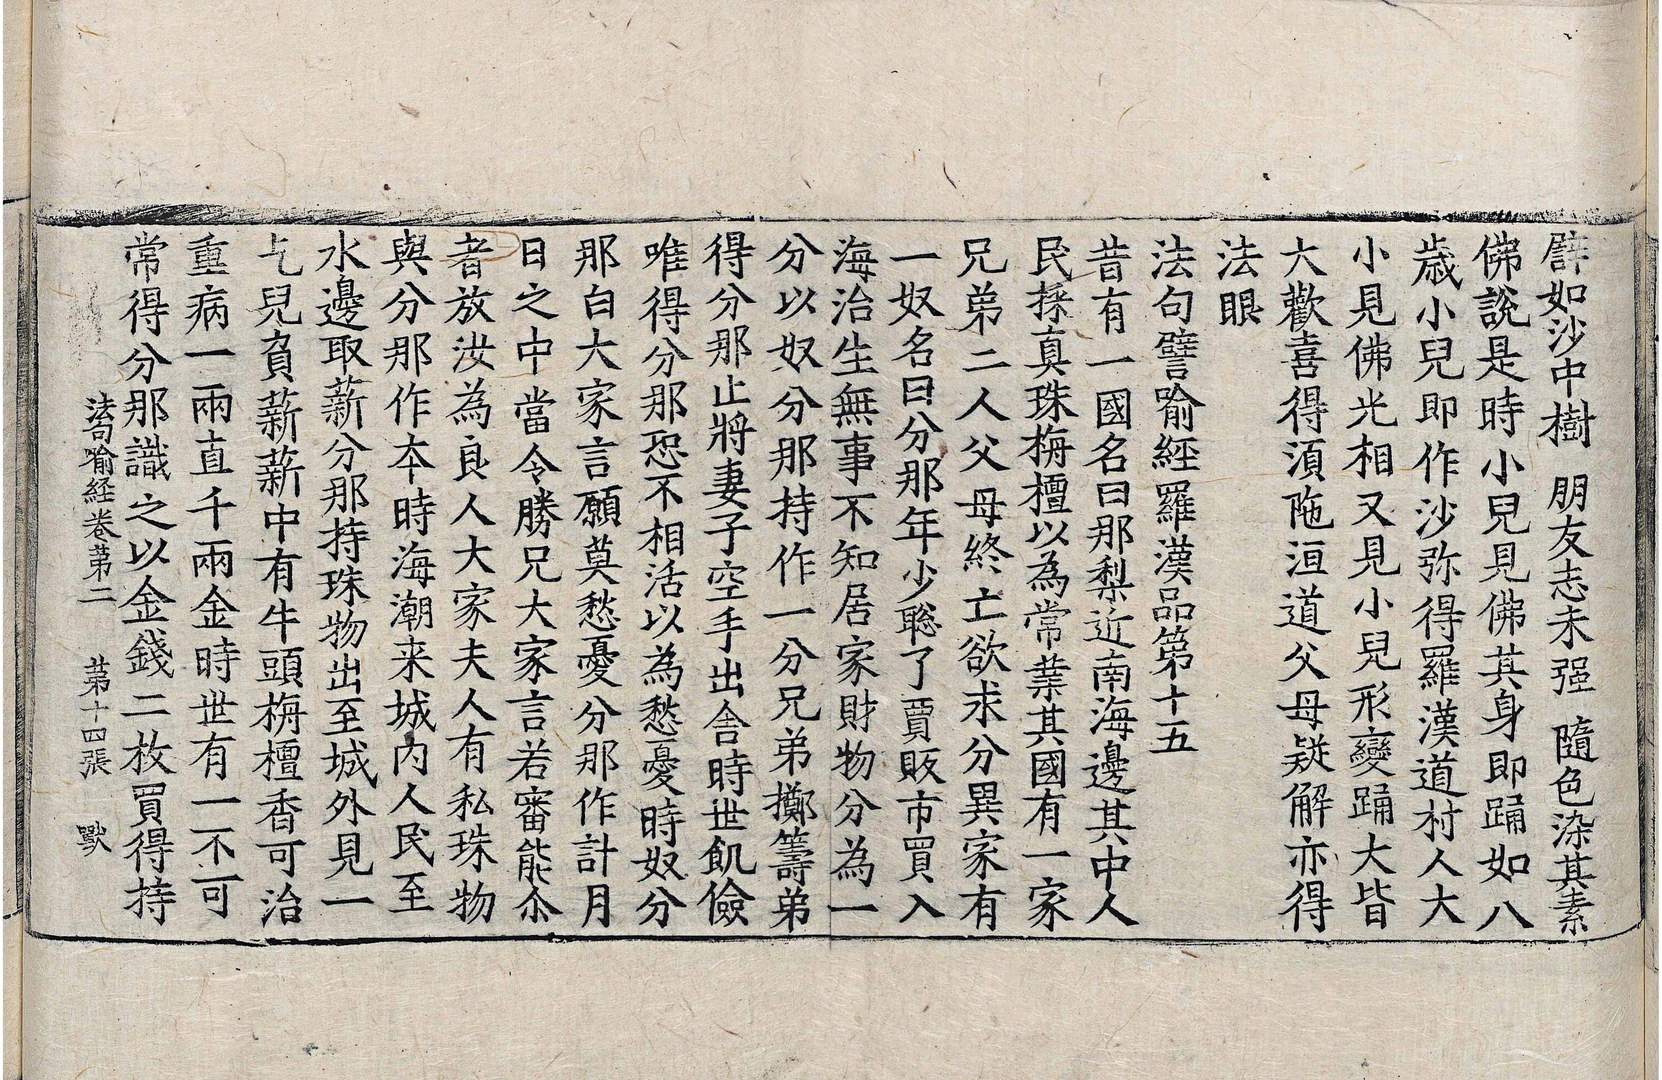 譬如沙中樹 朋友志未强 隨色染其素
佛說是時小兒見佛其身即踊如八
歲小兒即作沙弥得羅漢道村人大
小見佛光相又見小兒形變踊大皆
大歡喜得湏陁洹道父母疑解亦得
法眼
法句譬喻經羅漢品第十五
昔有一國名曰那梨近南海邊其中人
民採真珠栴檀以為常業其國有一家
兄弟二人父母終亡欲求分異家有
一奴名曰分那年少聡了賈販市買入
海治生無事不知居家財物分為一
分以奴分那持作一分兄弟擲籌弟
得分那止將妻子空手出舍時世飢儉
唯得分那恐不相活以為愁憂時奴分
那白大家言願莫愁憂分那作計月
日之中當令勝兄大家言若審能尒
者放汝為良人大家夫人有私珠物
與分那作夲時海潮来城內人民至
水邊取薪分那持珠物出至城外見一
乞兒負薪薪中有牛頭栴檀香可治
重病一兩直千兩金時世有一不可
常得分那識之以金錢二枚買得持
法句喻経卷苐二 苐十四張 獸